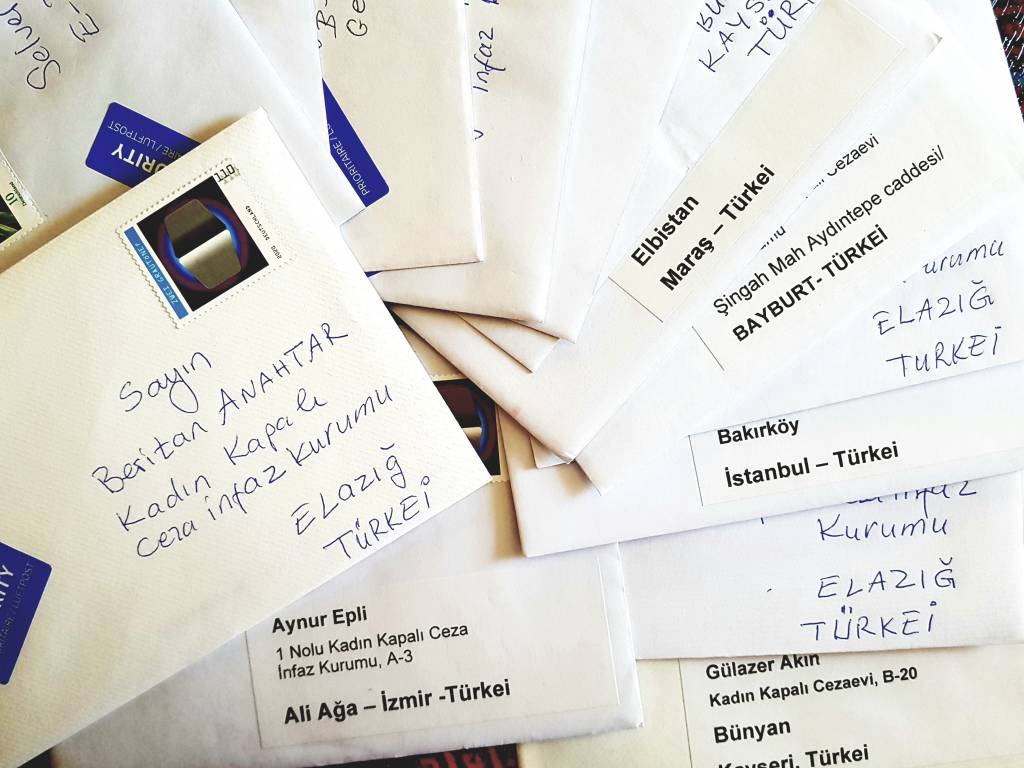 Selve
E-
B-
Ge
infaz
KAYS
TÜRK
PRIORITY
PRIORITAIRE / LUFTPOST
10
110
2020 DEUTSCHLAND
ZWEI GRAUTÖNE?
Sayın
Beritan ANAHTAR
Kadın Kapalı
Ceza infaz Kurumu
ELazığ
TÜRKEİ
LUFTPOST
Elbistan
Maraş – Türkei
Cezaevi
Şingah Mah Aydıntepe caddesi/
BAYBURT- TÜRKEİ
urumu
ELAZIĞ
TURKEİ
Bakırköy
İstanbul – Türkei
infaz
Kurumu
ELAZIĞ
TÜRKEİ
Aynur Epli
1 Nolu Kadın Kapalı Ceza
İnfaz Kurumu, A-3
Ali Ağa – İzmir -Türkei
Gülazer Akın
Kadın Kapalı Cezaevi, B-20
Bünyan
Kayseri, Türkei